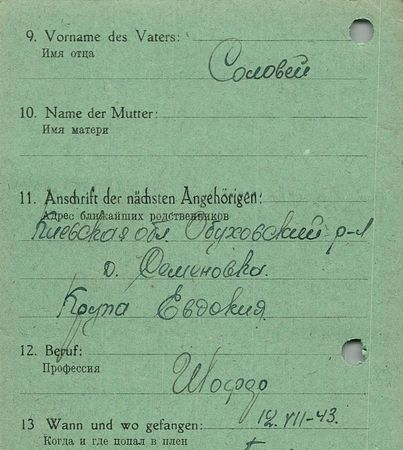 9. Vorname des Vaters:
Имя отца
Соловей
10. Name der Mutter:
Имя матери
11. Anschrift der nächsten Angehörigen:
Адрес ближайших родственников
Киевская обл. Обуховский р-л
д. Семеновка.
Крупа Евдокия.
12. Beruf:
Профессия
13 Wann und wo gefangen:
12. VII-43.
Когда и где попал в плен